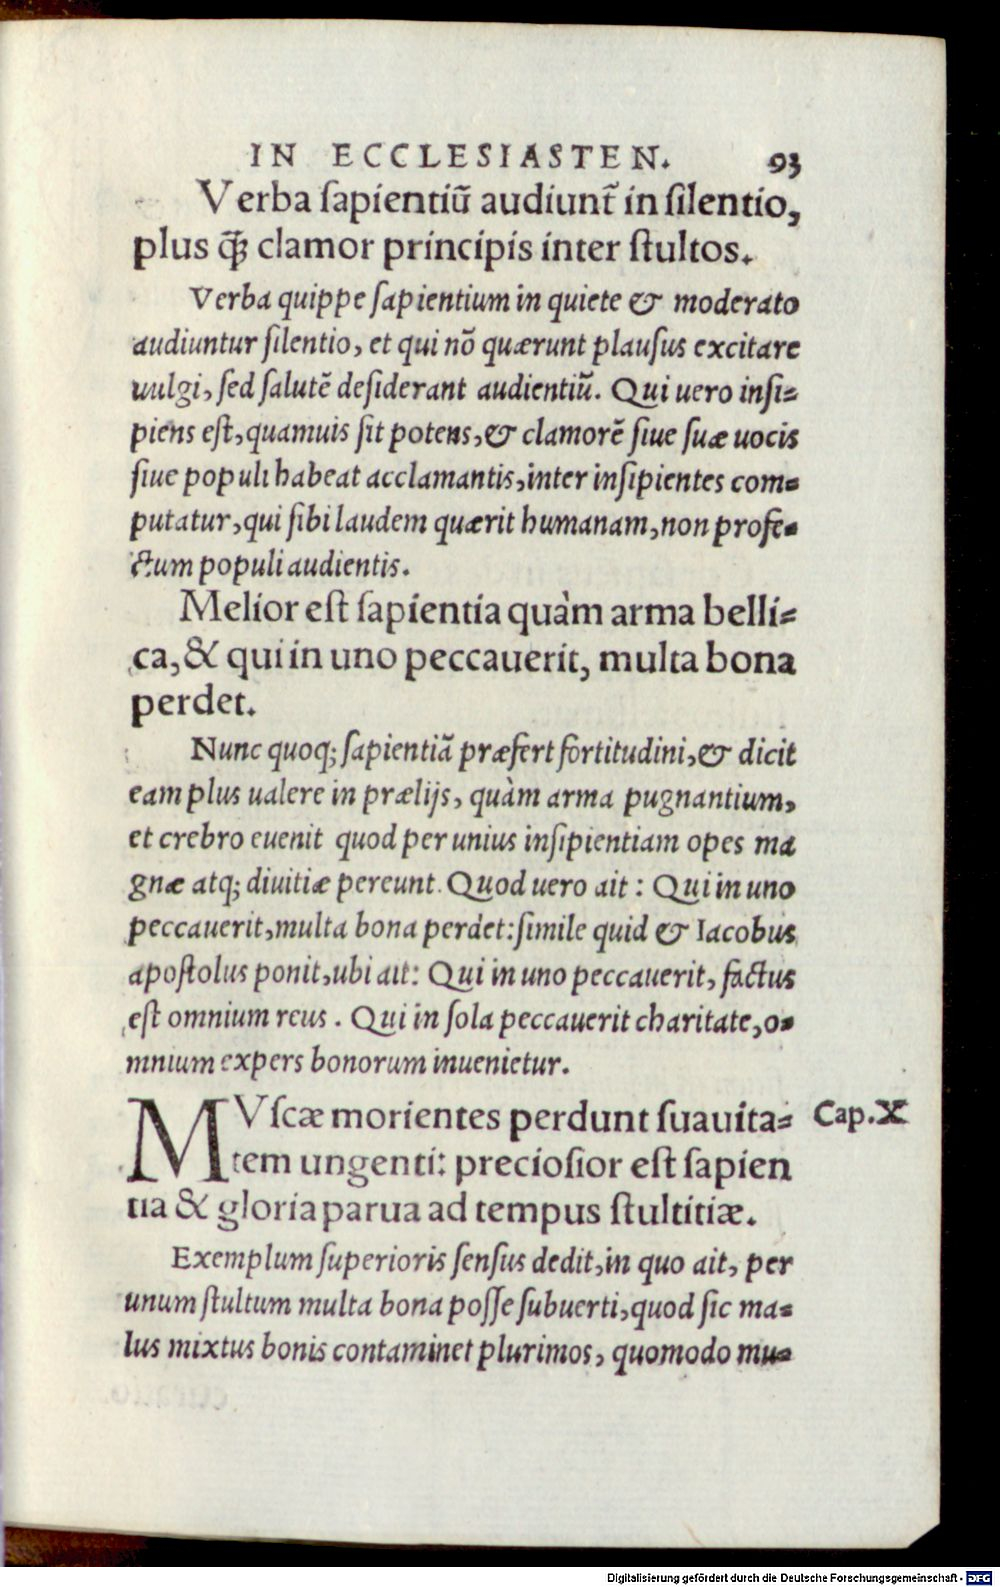 IN ECCLESIASTEN. 93
Verba sapientiū audiunt̄ in silentio,
plus q̃ꝫ clamor principis inter stultos.
Verba quippe sapientium in quiete & moderato
audiuntur silentio, et qui nō quærunt plausus excitare
uulgi, sed salutē desiderant audientiū. Qui uero insi=
piens est, quamuis sit potens, & clamorē siue suæ uocis
siue populi habeat acclamantis, inter insipientes com=
putatur, qui sibi laudem quærit humanam, non profe=
ctum populi audientis.
Melior est sapientia quàm arma belli=
ca, & qui in uno peccauerit, multa bona
perdet.
Nunc quoq; sapientiā præfert fortitudini, & dicit
eam plus ualere in prælijs, quàm arma pugnantium,
et crebro euenit quod per unius insipientiam opes ma
gnæ atq; diuitiæ pereunt. Quod uero ait: Qui in uno
peccauerit, multa bona perdet: simile quid & Iacobus
apostolus ponit, ubi ait: Qui in uno peccauerit, factus
est omnium reus. Qui in sola peccauerit charitate, o=
mnium expers bonorum inuenietur.
MVscæ morientes perdunt suauita= Cap. X
tem ungenti: preciosior est sapien
tia & gloria parua ad tempus stultitiæ.
Exemplum superioris sensus dedit, in quo ait, per
unum stultum multa bona posse subuerti, quod sic ma=
lus mixtus bonis contaminet plurimos, quomodo mu=
Digitalisierung gefördert durch die Deutsche Forschungsgemeinschaft - DFG